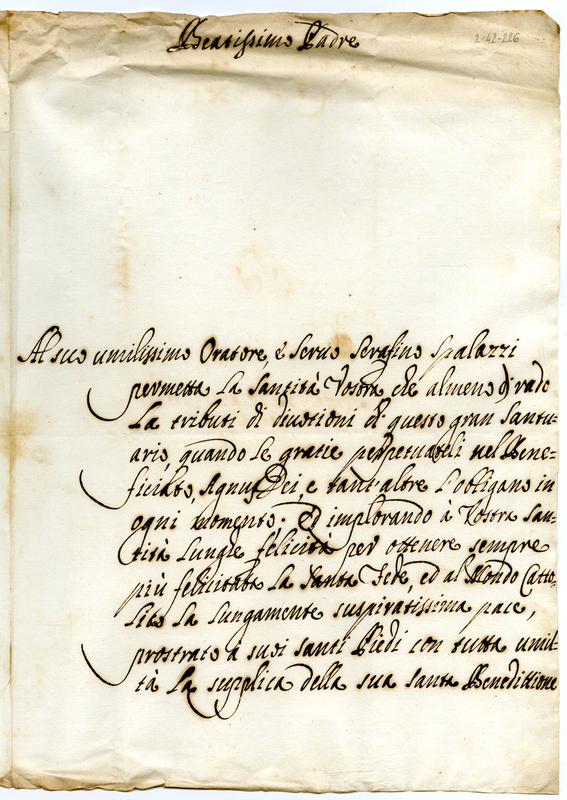 Beatissimo Padre
2-42-226
Al suo umilissimo Oratore, e servo Serafino Spalazzi
permetta la Santità Vostra che almeno di rado
La tributi di divotioni di questo gran Santu=
ario, quando le gratie perpetuateli nel Bene=
ficiato, Agnus Dei, e tant'altre l'obligano in
ogni momento; Ed implorando à Vostra San=
tità lunghe felicità per ottenere sempre
più felicitata la Santa Fede, ed al Mondo Catto=
lico la lungamente suspiratissima pace,
prostrato a suoi santi Piedi con tutta umil=
tà La supplica della sua santa Benedittione